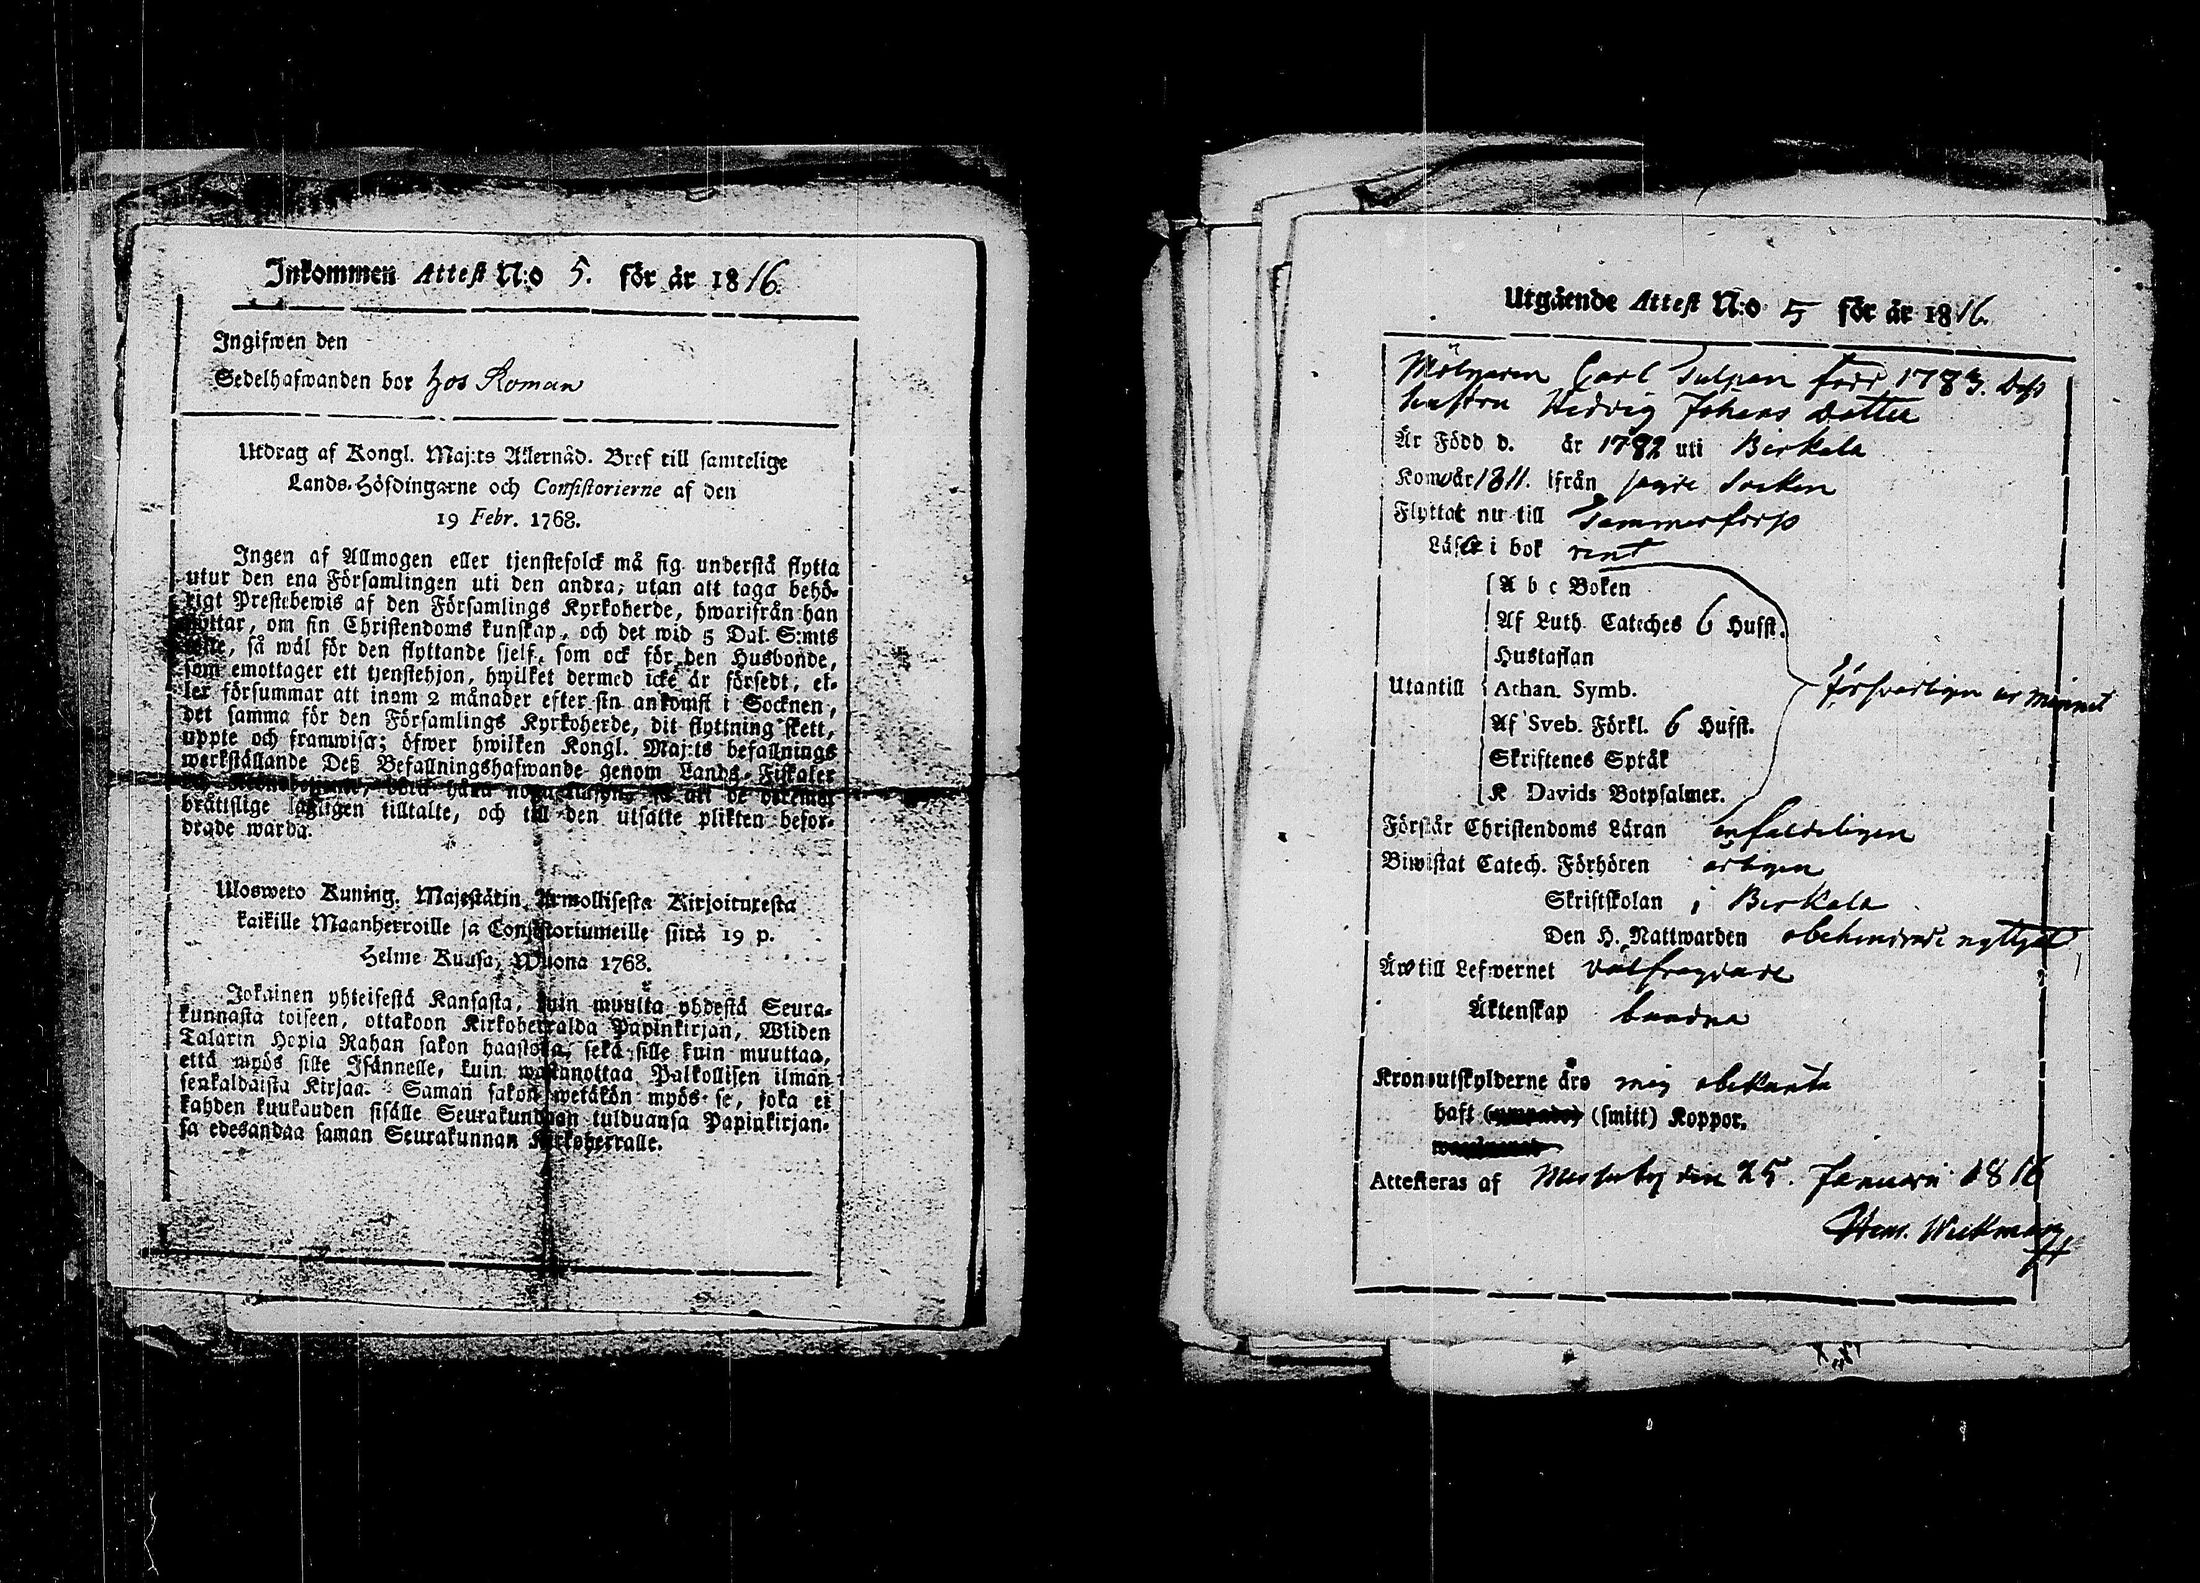 Inkommen Attest N:o 5. för år 1816.
Ingifwen den
Sedelhafwanden bor hos Roman
Utdrag af Kongl. Maj:ts Allernåd. Bref till samtelige
Lands-Höfdingarne och Consistorierne af den
19 Febr. 1768.
Ingen af Allmogen eller tjenstefolck må sig understå flytta
utur den ena Församlingen uti den andra, utan att taga behö-
rigt Prestebewis af den Församlings Kyrkoherde, hwarifrån han
flyttar, om sin Christendoms kunskap, och det wid 5 Dal. S:mts
wite, så wäl för den flyttande sjelf, som ock för den Husbonde,
som emottager ett tjenstehjon, hwilket dermed icke är försedt, el-
ler försummar att inom 2 månader efter sin ankomst i Socknen,
det samma för den Församlings Kyrkoherde, dit flyttning skett,
uppte och framwisa; öfwer hwilken Kongl. Maj:ts befallnings
werkställande Deß Befallningshafwande genom Lands-Fiskaler
att de
brättslige lagligen tilltalte, och till den utsatte plikten befor-
drade warda.
Ulosweto Kuning. Majestätin Armollisesta Kirjoituxesta
kaikille Maanherroille ja Consistoriumeille siitä 19 p.
Helme Kuusa, Wuona 1768.
Jokainen yhteisestä Kansasta, kuin muutta yhdestä Seura-
kunnasta toiseen, ottakoon Kirkoherralda Papinkirjan, Wliden
Talarin Hopia Rahan sakon haastolla, sekä sille kuin muuttaa,
että myös sille Isännelle, kuin wastanottaa Palkollisen ilman
senkaldaista Kirjaa. Saman sakon wetäkön myös se, joka ei
kahden kuukauden sisälle Seurakundaan tulduansa Papinkirjan-
sa edesandaa saman Seurakunnan Kirkoherralle.
Utgående Attest N:o 5 för år 1816.
Mölnaren Carl Tulpan född 1783. Dess
hustru Hedvig Johans Dotter
Är Född d. år 1782 uti Birkala
Kom år 1811. ifrån samma Socken
Flyttat nu till Tammerfors
Läser i bok rent
A b c Boken
Af Luth. Cateches 6 Hufst.
Hustaflan
Utantill Athan. Symb. försvarligen ur minnet
Af Sveb. Förkl. 6 Hufst.
Skriftenes Språk
K Davids Botpsalmer.
Förstår Christendoms Läran enfaldeligen
Biwistat Catech. Förhören årligen
Skriftskolan i Birkala
Den H. Nattwarden obehindrade nyttjat
Äro till Lefwernet välfrejdade
Äktenskap bundna
Kronoutskylderne äro mig obekanta
haft (smitt) Koppor.
Attesteras af Messuby den 25. Januari 1816
Henr. Wickman